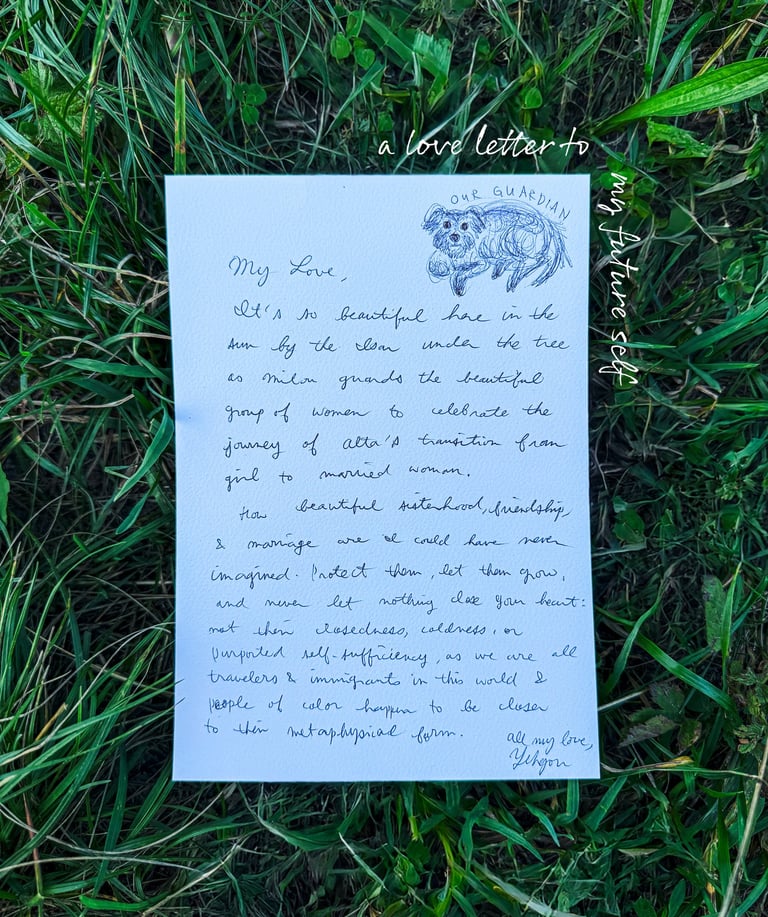 a love letter to
my future self
OUR GUARDIAN
My Love,
It's so beautiful here in the
sun by the Isar under the tree
as Milou guards the beautiful
group of women to celebrate the
journey of Alta's transition from
girl to married woman.
How beautiful sisterhood, friendship,
& marriage are I could have never
imagined. Protect them, let them grow,
and never let nothing close your heart:
not their closedness, coldness, or
purported self-sufficiency, as we are all
travelers & immigrants in this world &
people of color happen to be closer
to their metaphysical form.
all my love,